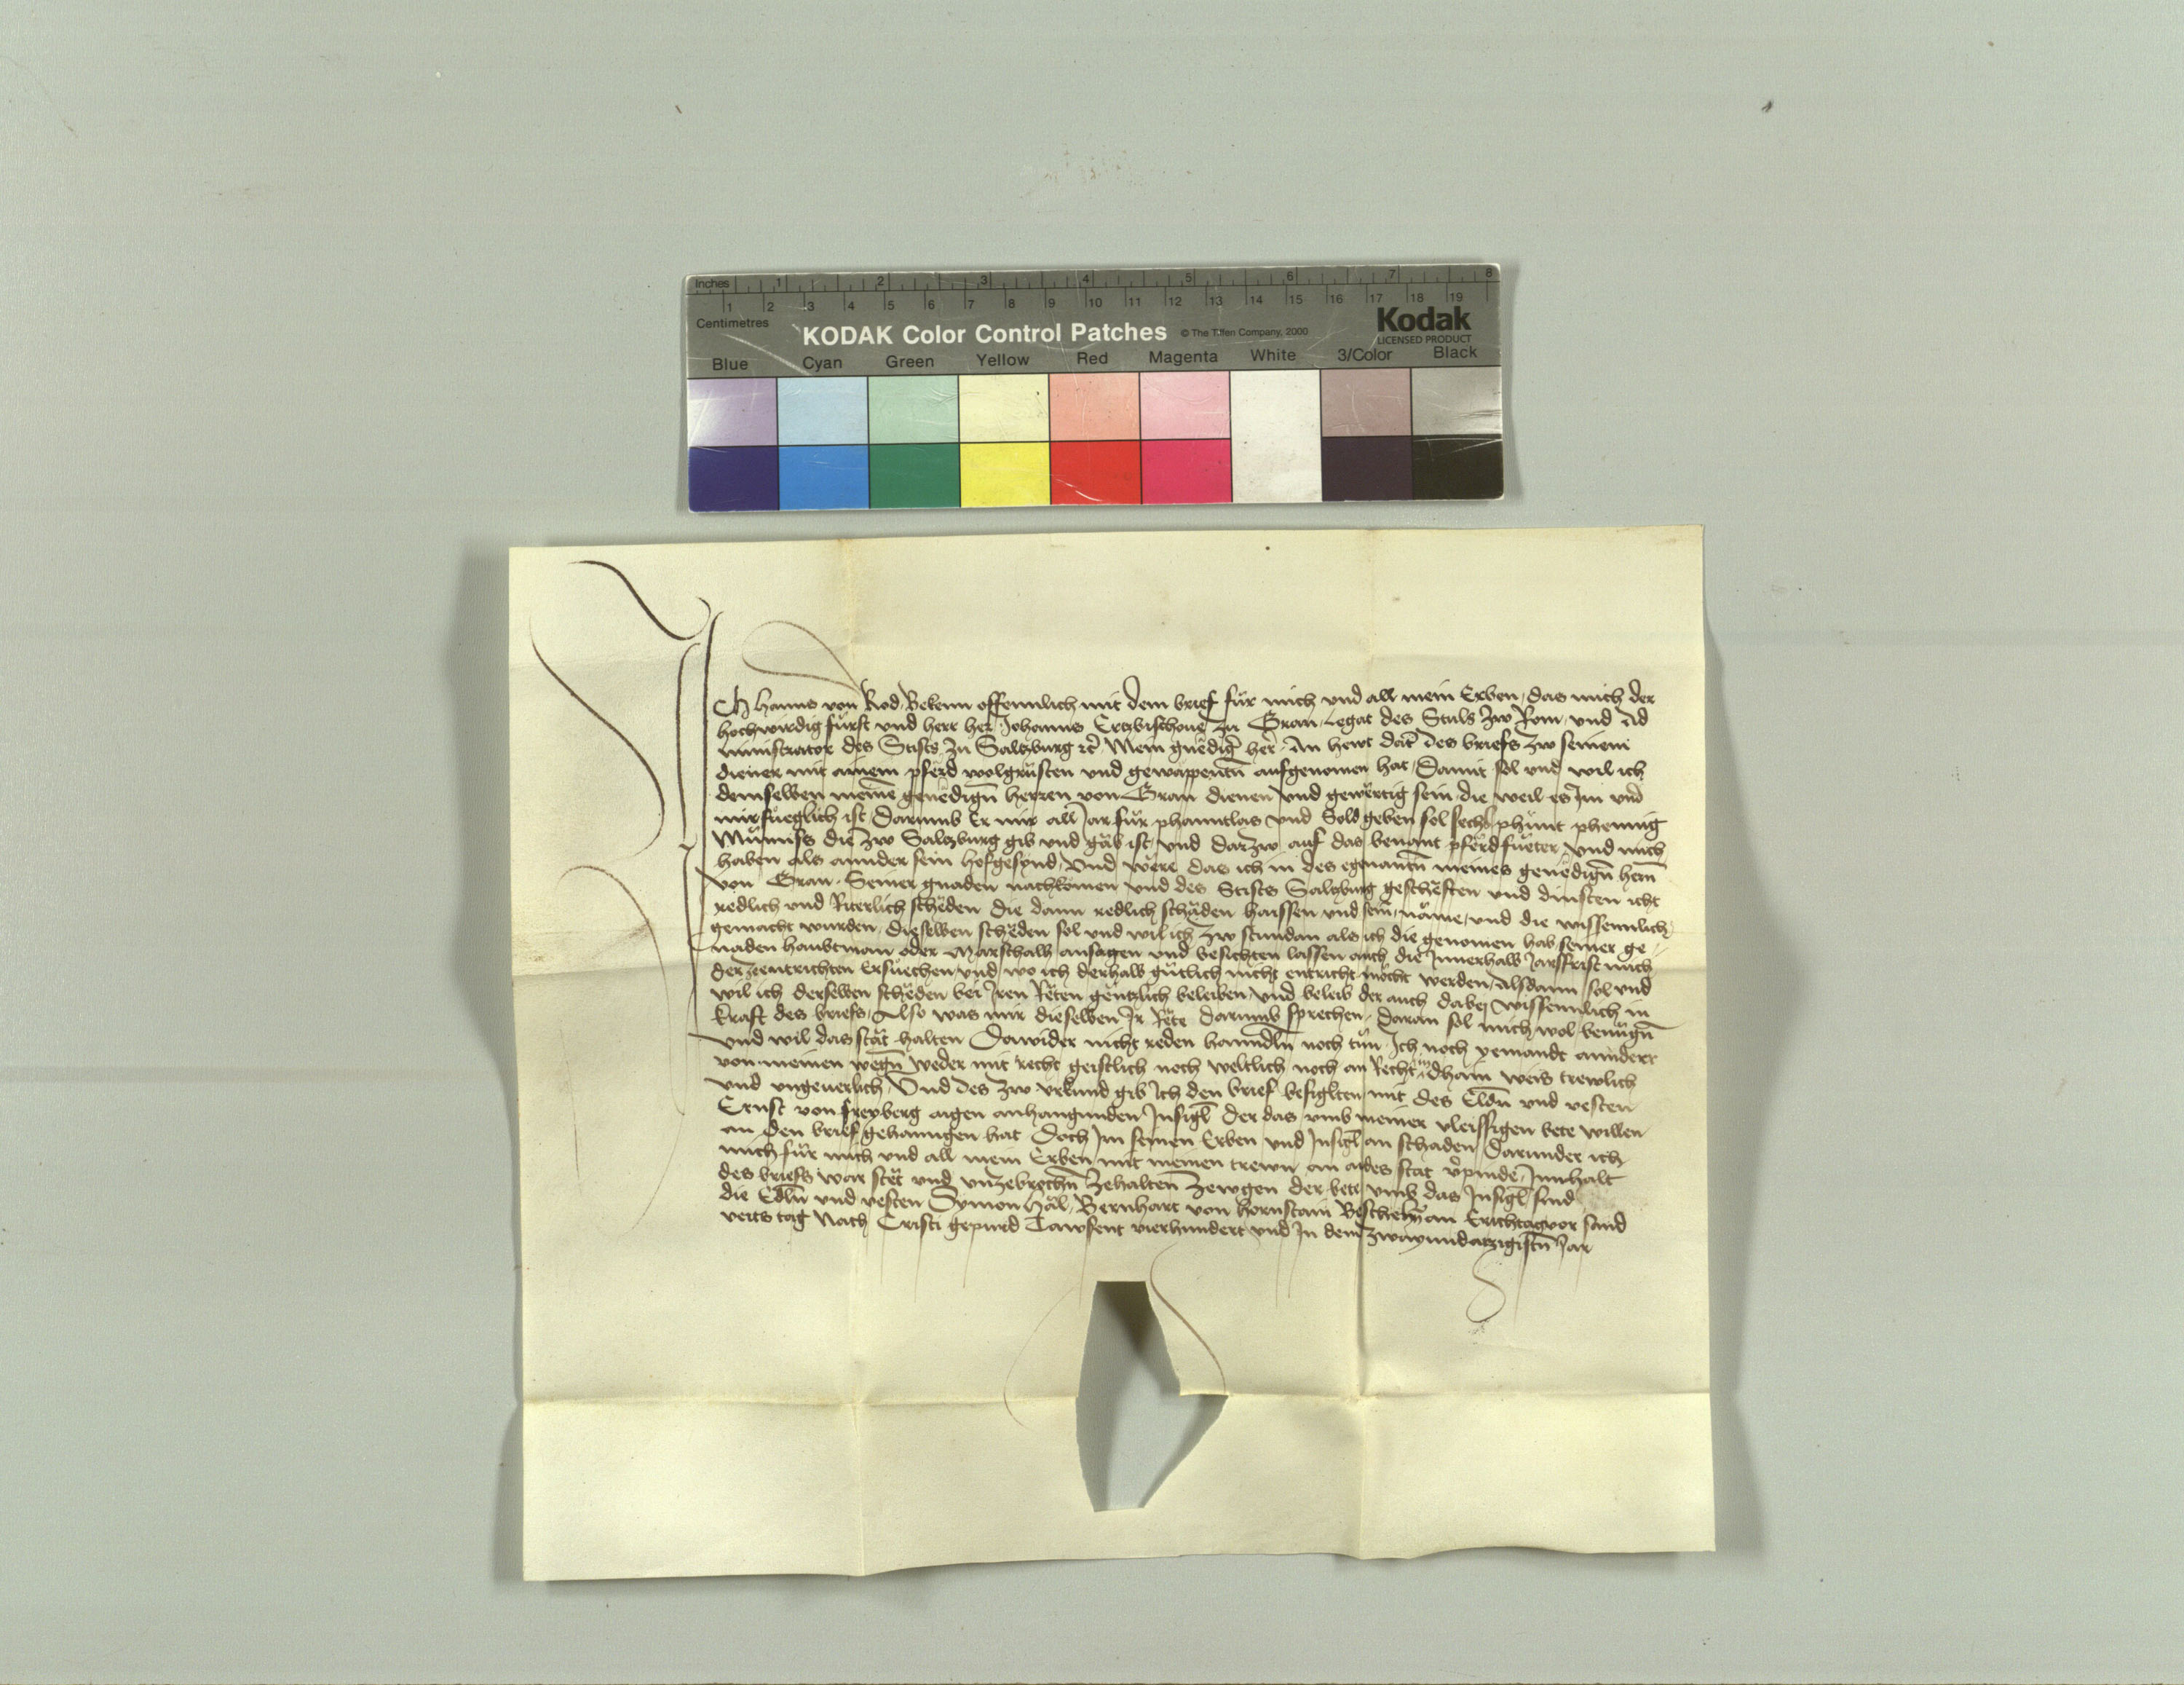 Inches 1 2 3 4 5 6 7 8
1 2 3 4 5 6 7 8 9 10 11 12 13 14 15 16 17 18 19
Centimetres
KODAK Color Control Patches © The Tiffen Company, 2000 Kodak
LICENSED PRODUCT
Blue Cyan Green Yellow Red Magenta White 3/Color Black
Ich Hanns von Rod Bekenn offennlich mit dem brief für mich und all mein Erben, das mich der
hochwirdig fürst und herr her Johanns Ertzbischoue zu Gran, Legat des Stuls zw Rom, und Ad
ministrator des Stifts zu Saltzburg ꝛc̃ Mein gnëdig̃ her̃ An hewt dat̃ des briefs zw seinem
diener mit ainem pferd wolgrüsten und gewappentn̄ aufgenomen hat, Damit sol und wil ich
demselben meinē genëdign̄ herren von Gran dienen und gewërtig sein, die weil es Im und
mir füeglich ist, Darumb Er mir all Jar für phanntlos und Sold geben sol sechs phünt phennig
Münniss die zw Saltzburg gib und gäb ist, und darzw auf das benant pferd fueter, und mich
haben als annder sein hofgesynd, Und wëre das ich in des egenantn̄ meines genëdign̄ herñ
von Gran, Seiner gnaden nachkomen und des Stifts Saltzburg geschëften und dinsten icht
redlich und Riterlich schëden die dann redlich schäden haissen und sein, näme, und die wissennlich
gemacht wurden, dieselben schëden sol und wil ich zw stundan als ich die genomen hab seiner ge-
naden haubtman oder Marschalh ansagen und besichten lassen auch die Innerhalb Jarsfrist mich
der zentrichten Ersuechen, und wo ich derhalb gütlich nicht entricht möcht werden, Alsdann sol und
wil ich derselben schëden bei Iren Rëten gëntzlich beleiben, und beleib der auch dabej wissennlich in
kraft des briefs, Also was mir dieselben Ir Rëte darumb sprechen, daran sol mich wol benügn̄
und wil das stät halten Dawider nicht reden hanndln̄ noch tün, Ich noch yemandt annderr
von meinen wegn̄ weder mit recht geistlich noch weltlich noch an Recht in dhain weis trewlich
und ungeuerlich Und des zw vrkund gib Ich den brief besigltn̄ mit des Edln̄ und vesten
Ernst von freyberg aigen anhangunden Insigl̄ der das umb meiner vleissigen bete willen
an den brief gehanngen hat Doch Im seinen Erben und Insigl̄ an schaden, Darunder ich
mich für mich und all mein Erben mit meinen trewn an aides stat v̄pinde, Innhalt
des briefs war stët und unzebrechn̄ zehalten̄ Zewgen der bete umb das Insigl̄ sind
die Edln̄ und vesten Symon Häl, Bernhart von hornstain Beschehn̄ an Erichtag vor sand
veits tag Nach Cristi gepurd Tawsent vierhundert und In dem zwayundatzigistn̄ Jar